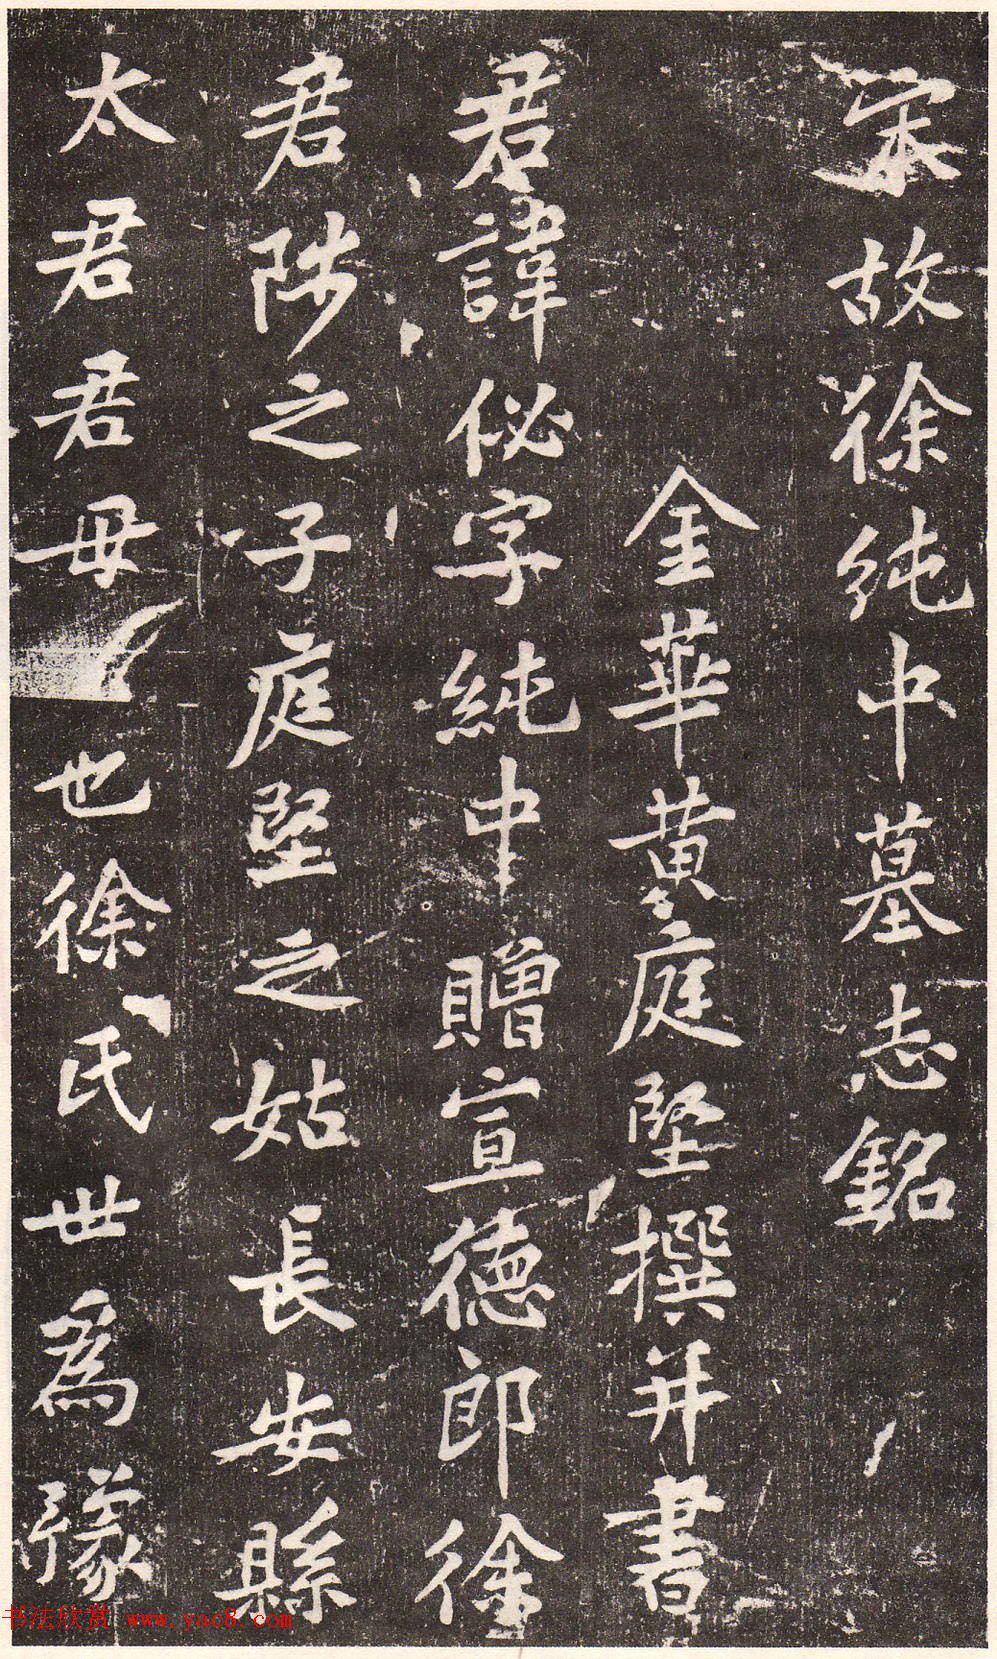 宋故徐純中墓志銘
金華黄庭堅撰并書
君諱佖字純中贈宣德郎徐
君陟之子庭堅之姑長安縣
太君君母也徐氏世為豫
书法欣赏 www.yac8.com